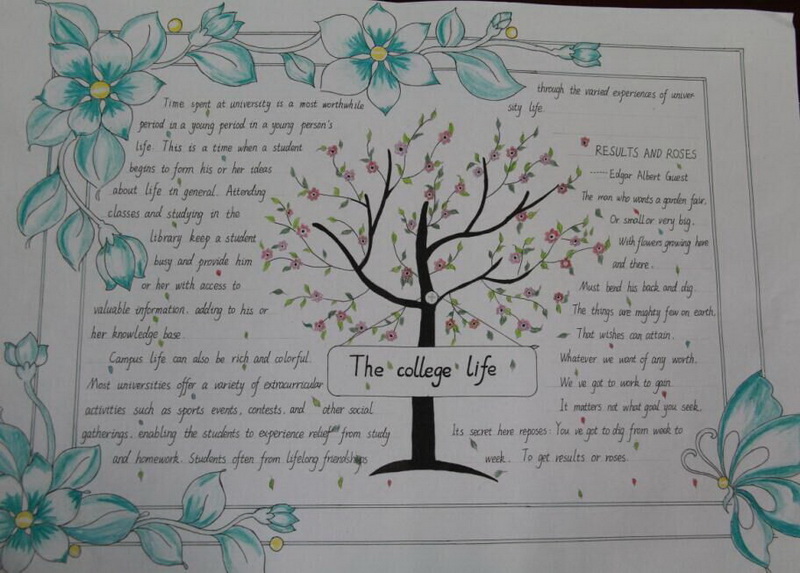 Time spent at university is a most worthwhile
period in a young period in a young person's
life. This is a time when a student
begins to form his or her ideas
about life in general. Attending
classes and studying in the
library keep a student
busy and provide him
or her with access to
valuable information. adding to his or
her knowledge base.
Campus life can also be rich and colorful.
Most universities offer a variety of extracurricular
activities such as sports events, contests, and other social
gatherings, enabling the students to experience relief from study
and homework. Students often from lifelong friendships
The college life
through the varied experiences of univer
sity life.
RESULTS AND ROSES
------ Edgar Albert Guest
The man who wants a garden fair,
Or small or very big,
With flowers growing here
and there,
Must bend his back and dig.
The things are mighty few on earth,
That wishes can attain.
Whatever we want of any worth,
We've got to work to gain.
It matters not what goal you seek,
Its secret here reposes: You've got to dig from week to
week. To get results or roses.